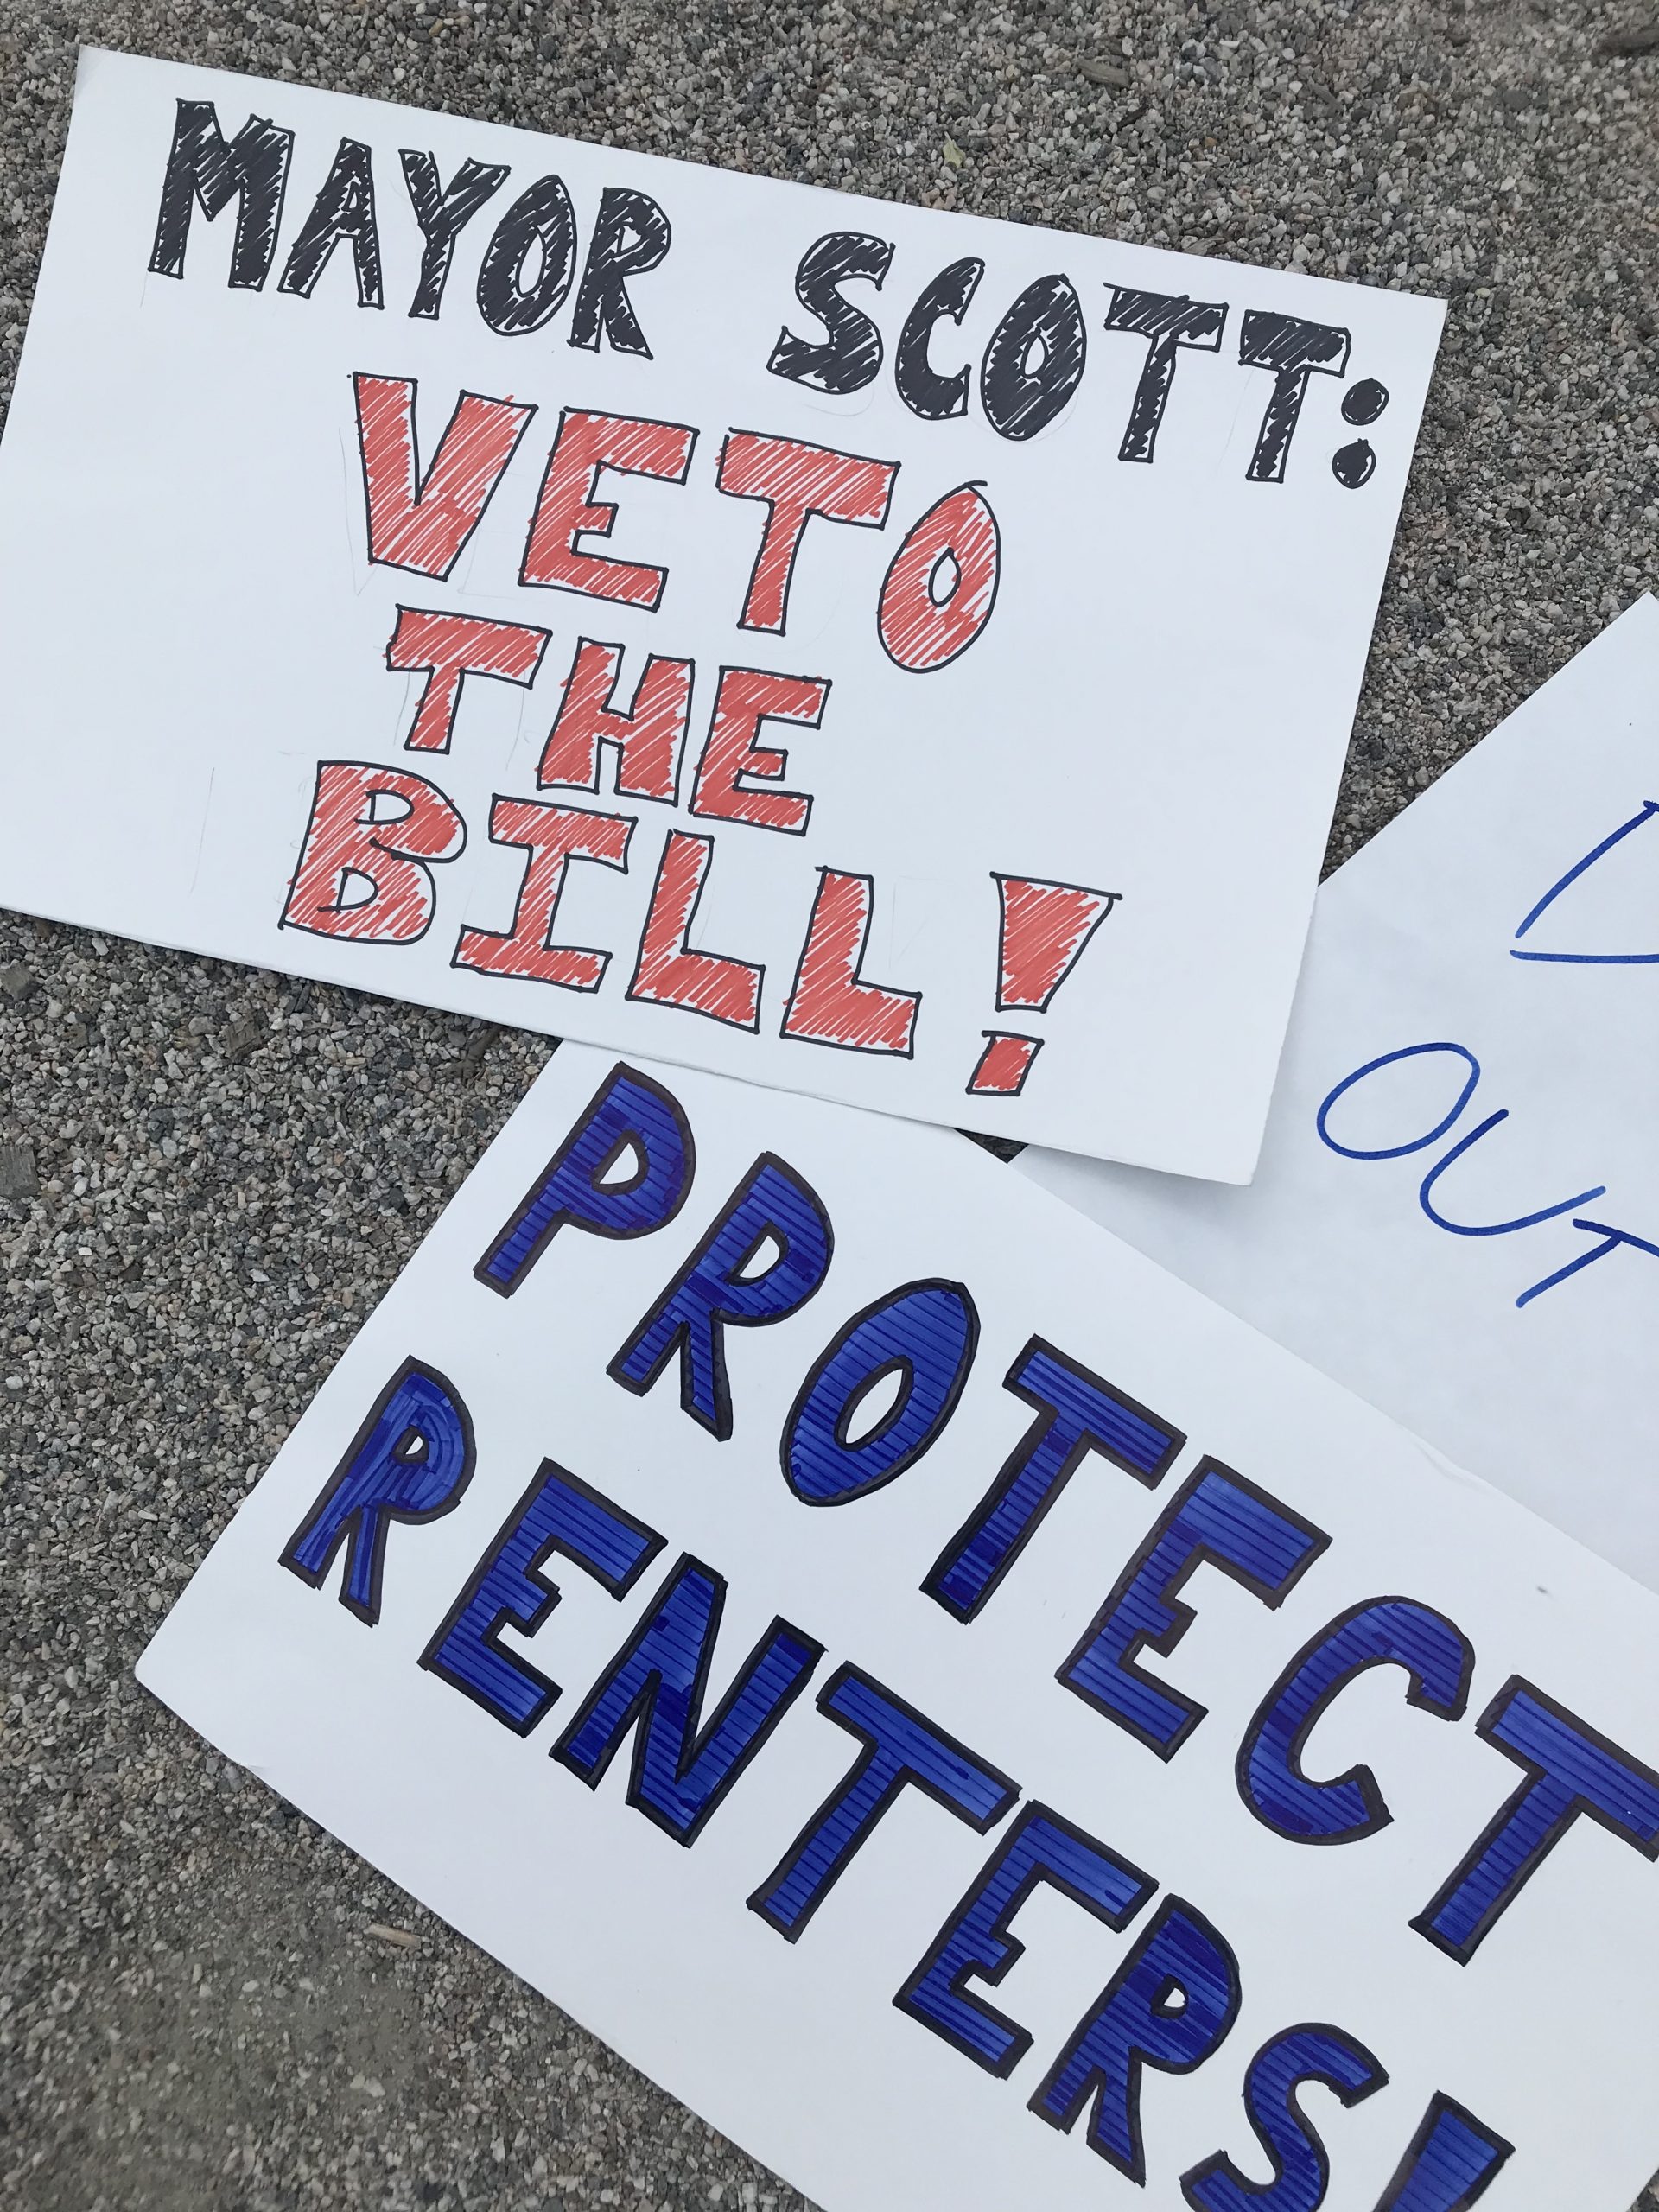 MAYOR SCOTT:
VETO
THE
BILL!
PROTECT
RENTERS!
OUT